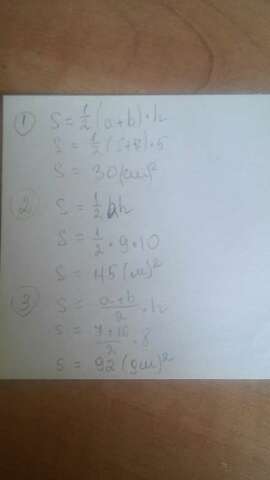 ① S = 1/2 (a+b)·h
S = 1/2 ( +8)·5
S = 30(см)²
② S = 1/2 h
S = 1/2 · 9 · 10
S = 45 (м)²
③ S = a+b/2 · h
S = 7+16/2 · 8
S = 92 (дм)²